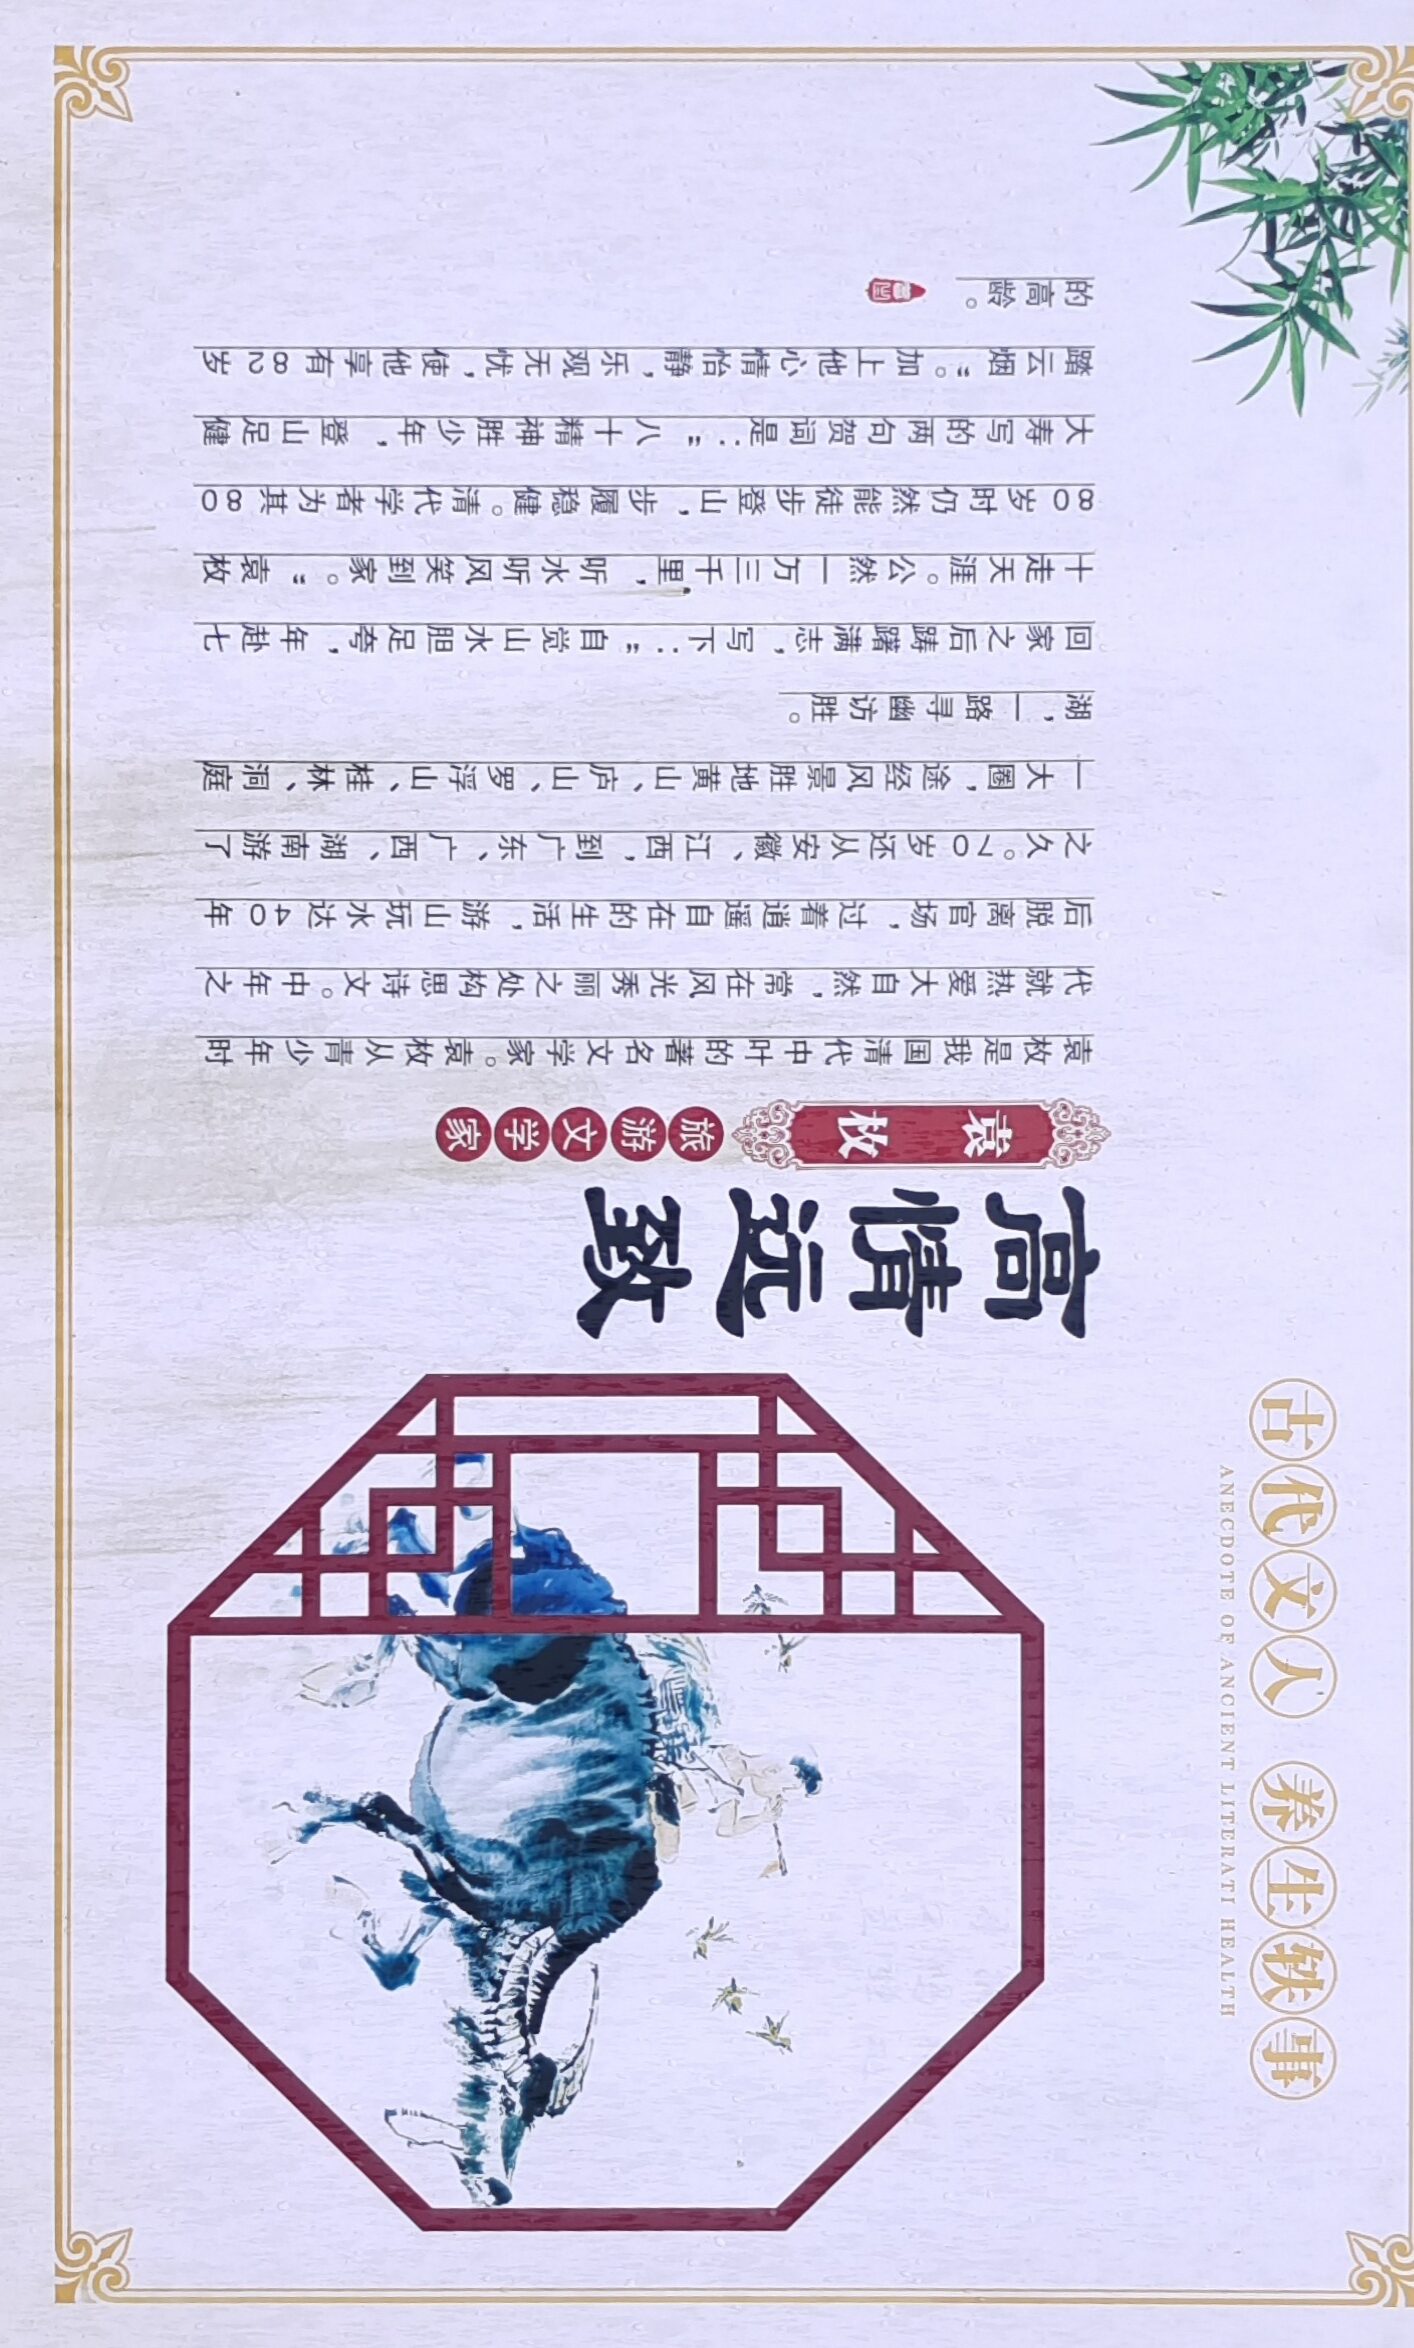 古代文人 养生轶事
ANECDOTE OF ANCIENT LITERATI HEALTH
高情远致
袁枚
旅游文学家
袁枚是我国清代中叶的著名文学家。袁枚从青少年时
代就热爱大自然，常在风光秀丽之处构思诗文。中年之
后脱离官场，过着逍遥自在的生活，游山玩水达40年
之久。70岁还从安徽、江西，到广东、广西、湖南游了
一大圈，途经风景胜地黄山、庐山、罗浮山、桂林、洞庭
湖，一路寻幽访胜。
回家之后踌躇满志，写下：“自觉山水胆足夸，年赴七
十走天涯。公然一万三千里，听水听风笑到家。”袁枚
80岁时仍然能徒步登山，步履稳健。清代学者为其80
大寿写的两句贺词是：“八十精神胜少年，登山足健
踏云烟”。加上他心情怡静，乐观无忧，使他享有82岁
的高龄。